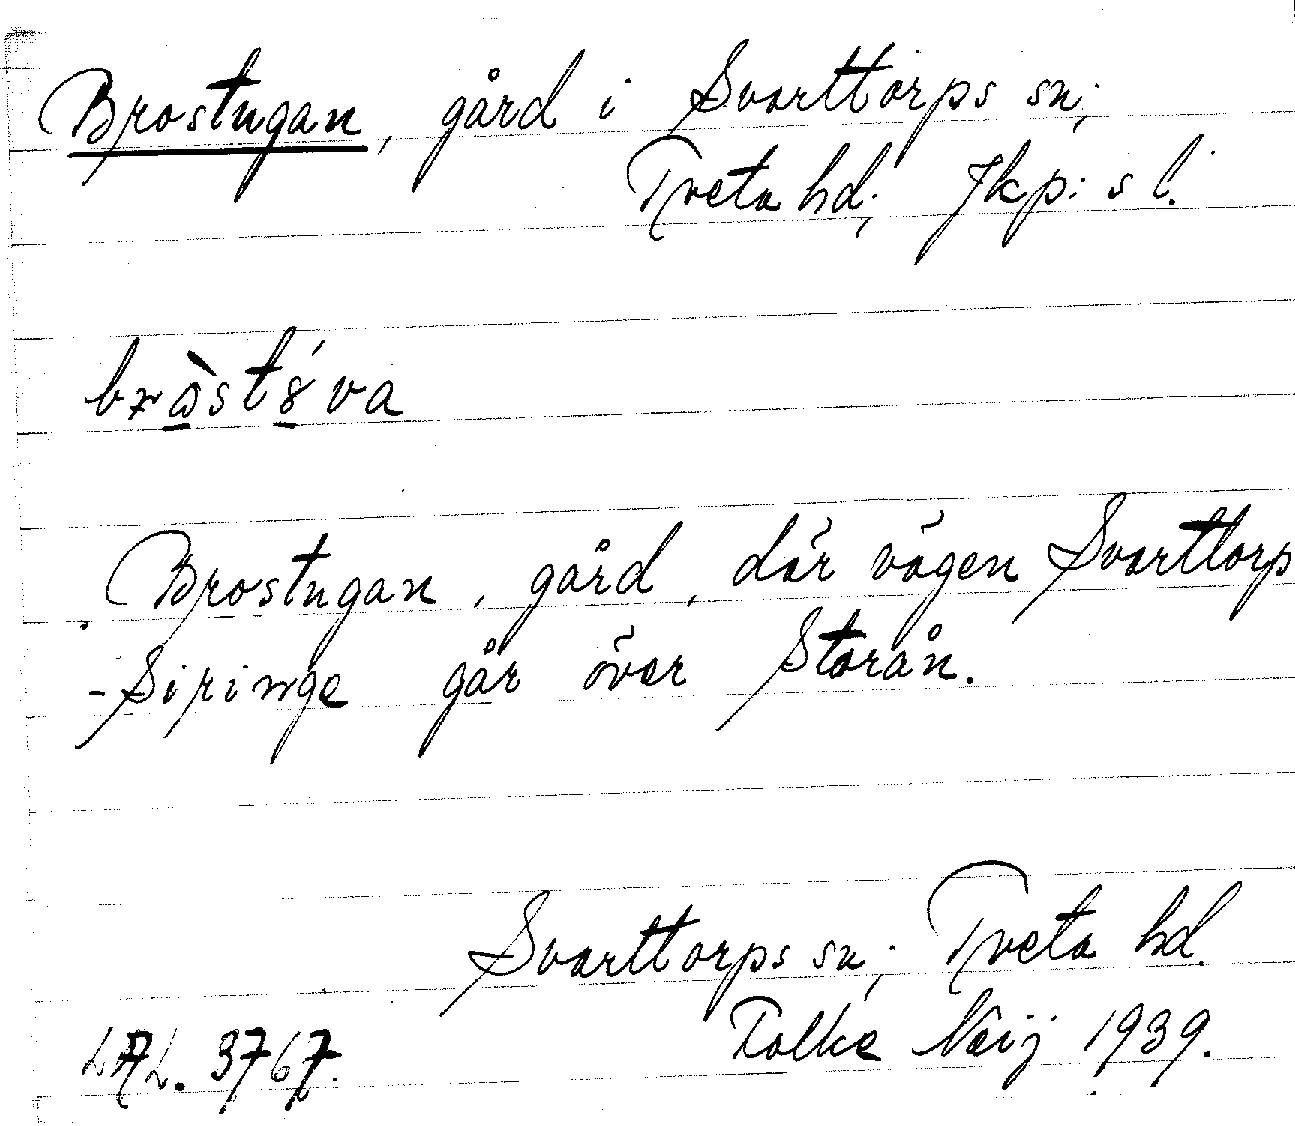 Brostugan, gård i Svarttorps sn;
Tveta hd; Jkp: s l.
Brostugan, gård, där vägen Svarttorp
-Siringe går över Storån.
Svarttorps sn; Tveta hd.
LAL. 3767. Folke Neij 1939.